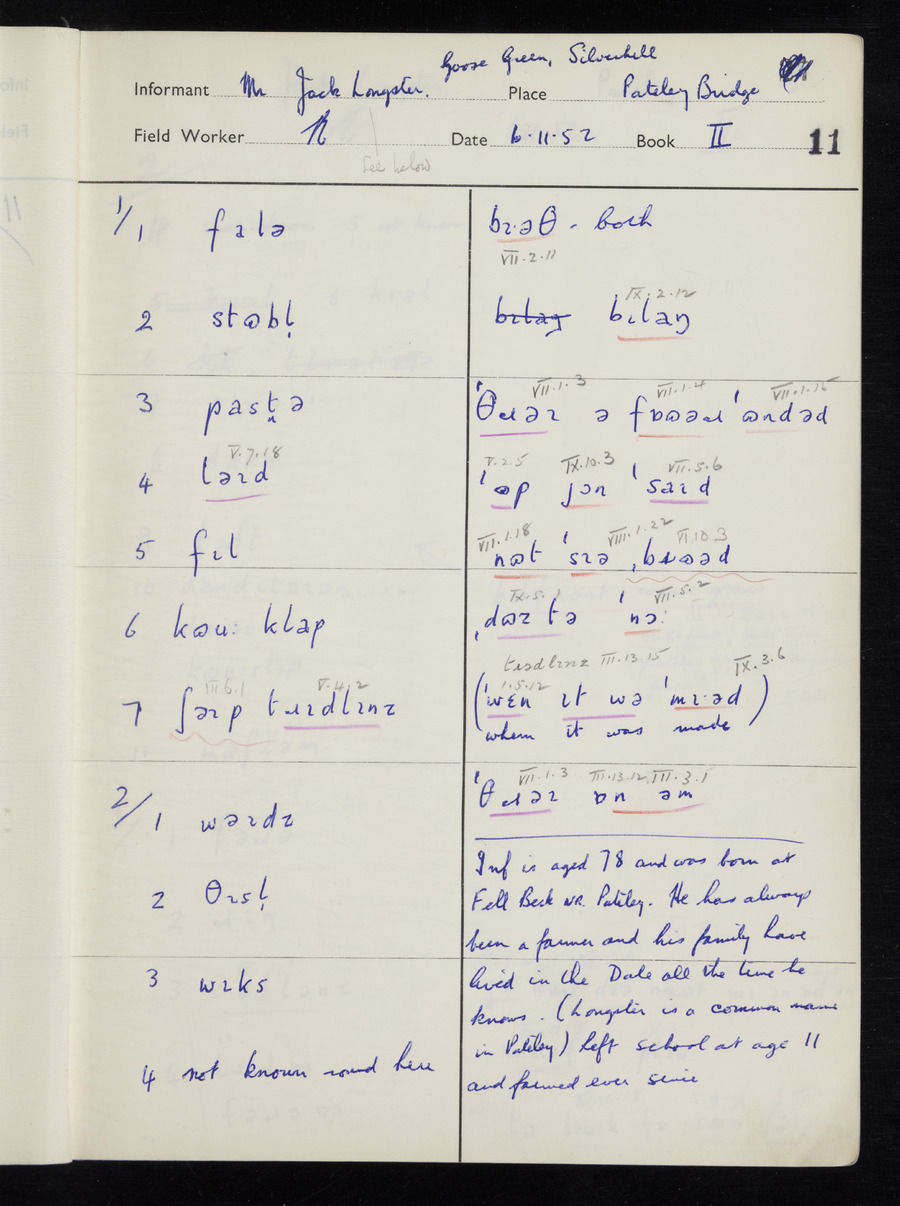 Goose Green, Silverhill
Informant Mr Jack Longster. Place Pateley Bridge
Field Worker Date 6.11.52 Book II 11
see below
1/1 falə
2 stɷbl̩
3 past̪ə
V.7.18
4 ləɪd
5 fɪl
6 kɷu: klap
III.6.1 V.4.2
7 ʃəɪp tɪɪdlɪnz
2/1 wəɪdz
2 θɪsl̩
3 wɪks
4 not known round here
bɪ·əθ - both
VII.2.11
IX.2.12
bɪlaŋ bɪlaŋ
VII.1.3 VII.1.4 VII.1.15
V.2.5 IX.10.3 VII.5.6
ˈɷp jən ˈsaɪd
VII.1.18 VIII.1.22 VI.10.3
nɷt ˈsɪə
IX.5.1 VII.5.2
III.13.15
1.5.12 IX.3.6
(ˈwɛn ɪt wə ˈmɪ·əd)
when it was made
VII.1.3 III.13.12, III.3.1
ɒn əm
Inf is aged 78 and was born at
Fell Beck nr. Pateley. He has always
been a farmer and his family have
lived in the Dale all the time he
knows. (Longster is a common name
in Pateley) left school at age 11
and farmed ever since